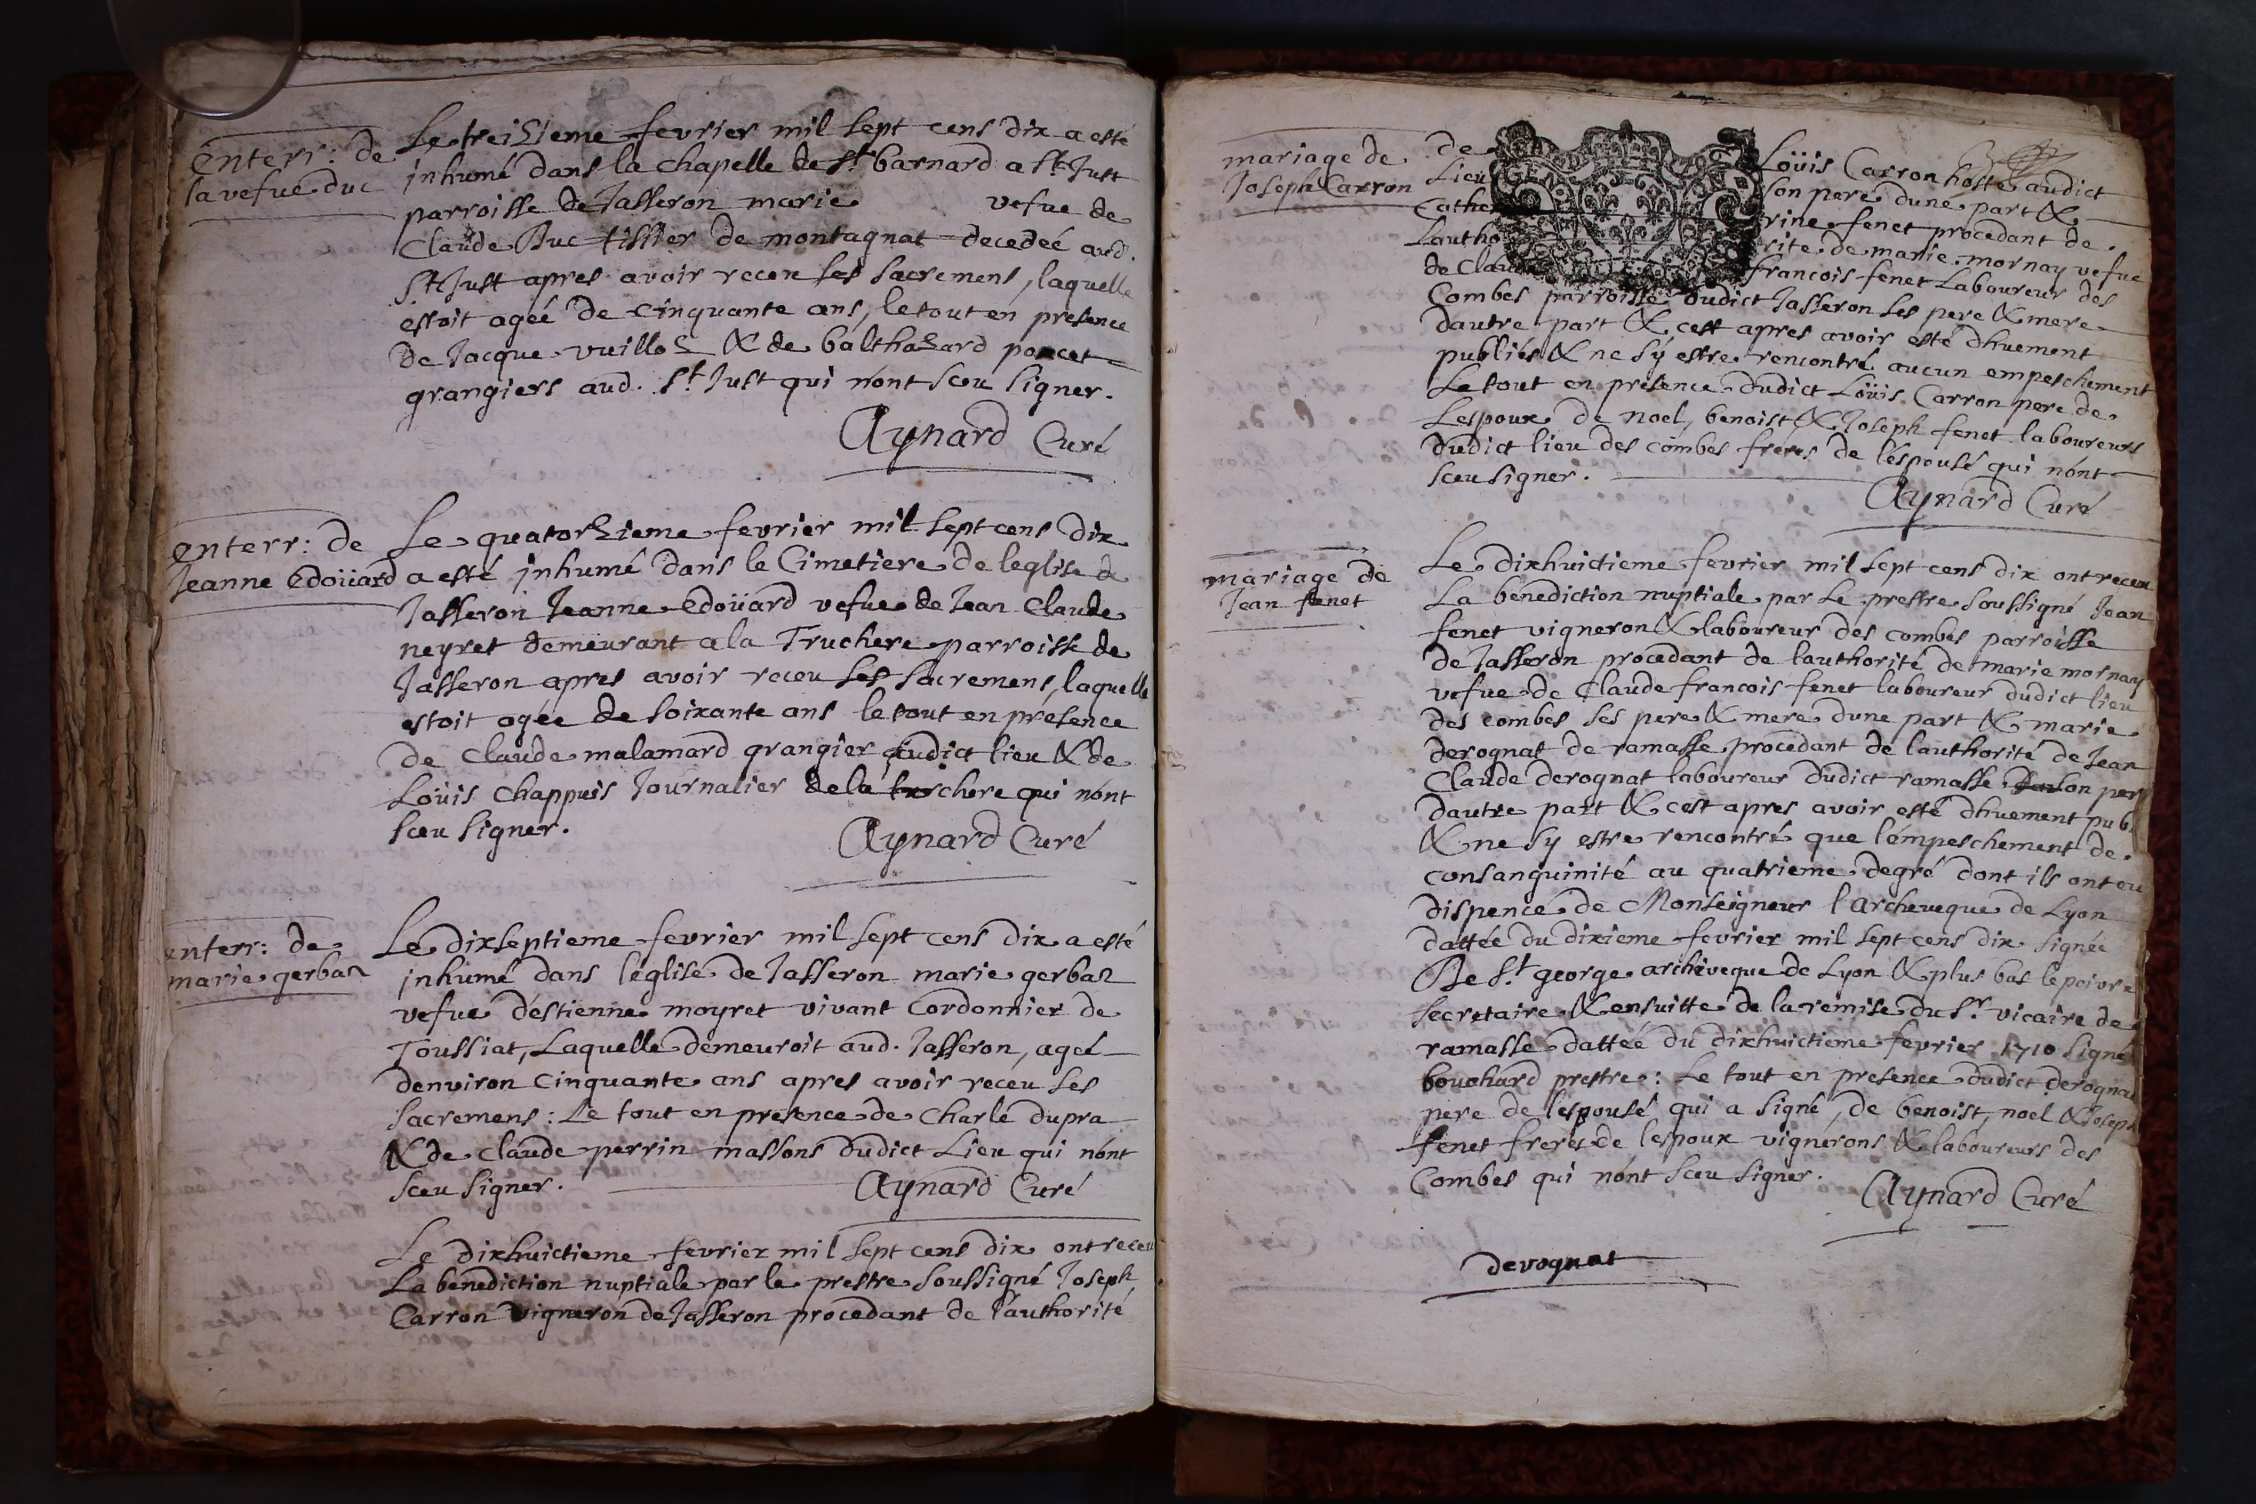 enterr: de
la vefue duc
Le treiZieme fevrier mil sept cens dix a esté
inhumé dans la chapelle de St barnard a St Just
parroisse de Jasseron marie vefue de
Claude Duc tissier de montagnat decedeé aud.
St Just apres avoir receu ses sacremens, laquelle
estoit ageé de cinquante ans, le tout en presence
de Jacque vuilloZ & de balthaZard poncet
grangiers aud. St Just qui nónt sceu signer.
Aynard Curé
enterr: de
Jeanne Edoüard
Le quatorZieme fevrier mil sept cens dix
a esté inhumé dans le Cimetiere de leglise de
Jasseron Jeanne Edoüard vefue de Jean Claude
neyret demeurant a la Truchere parroisse de
Jasseron apres avoir receu ses sacremens, laquelle
estoit agée de soixante ans le tout en présence
de Claude malamard grangier audict lieu & de
Loüis Chappuis Journalier de la truchere qui nónt
sceu signer.
Aynard Curé
enterr: de
marie gerbaz
Le dixseptieme fevrier mil sept cens dix a esté
inhumé dans léglise de Jasseron marie gerbaz
vefue déstienne moyret vivant Cordonnier de
Toussiat, Laquelle demeuroit aud. Jasseron, ageé
denviron Cinquante ans apres avoir receu ses
sacremens: Le tout en presence de Charle dupra
& de claude perrin massons dudict Lieu qui nónt
sceu signer.
Aynard Curé
Le dixhuictieme fevrier mil sept cens dix ont receu
La benediction nuptiale par le prestre soussigné Joseph
Carron vigneron de Jasseron procedant de láuthorité
mariage de
Joseph Carron
de Loüis Carron hoste audict
Lieu son pere dune part &
Catherine fenet procedant de
Lauthorite de marie mornay vefue
de Claude francois fenet Laboureur des
Combes parroisse dudict Jasseron ses pere & mere
dautre part & cest apres avoir esté dhuement
publiés & ne sÿ estre rencontré aucun empeschement
Le tout en présence dudict Loüis Carron pere de
Lespoux de noel, benoist & Joseph fenet laboureurs
dudict lieu des combes freres de léspousé qui nónt
sceu signer.
Aynard Curé
mariage de
Jean fenet
Le dixhuictieme fevrier mil sept cens dix ont receu
La benediction nuptiale par Le prestre soussigné Jean
fenet vigneron & laboureur des combes parroisse
de Jasseron procedant de lauthorité de marie mornay
vefue de Claude francois fenet laboureur dudict lieu
des combes ses pere & mere dune part & marie
derognat de ramasse procedant de lauthorité de Jean
Claude derognat laboureur dudict ramasse son pere
dautre part & cest apres avoir esté dhuement pub.
& ne sy estre rencontré que lémpeschement de
consanguinité au quatrieme degré dont ils ont eu
dispence de Monseigneur l'archeveque de Lyon
dattée du dixieme fevrier mil sept cens dix signée
De St george archeveque de Lyon & plus bas le poivre
secretaire & ensuitte de la remise du Sr. vicaire de
ramasse dattée du dixhuictieme fevrier 1710 signé
bouchard prestre: Le tout en presence dudict derognat
pere de lespousé qui a signé, de benoist, noel & Joseph
fenet freres de lespoux vignérons & laboureurs des
Combes qui nónt sceu signer.
Aynard Curé
derognat